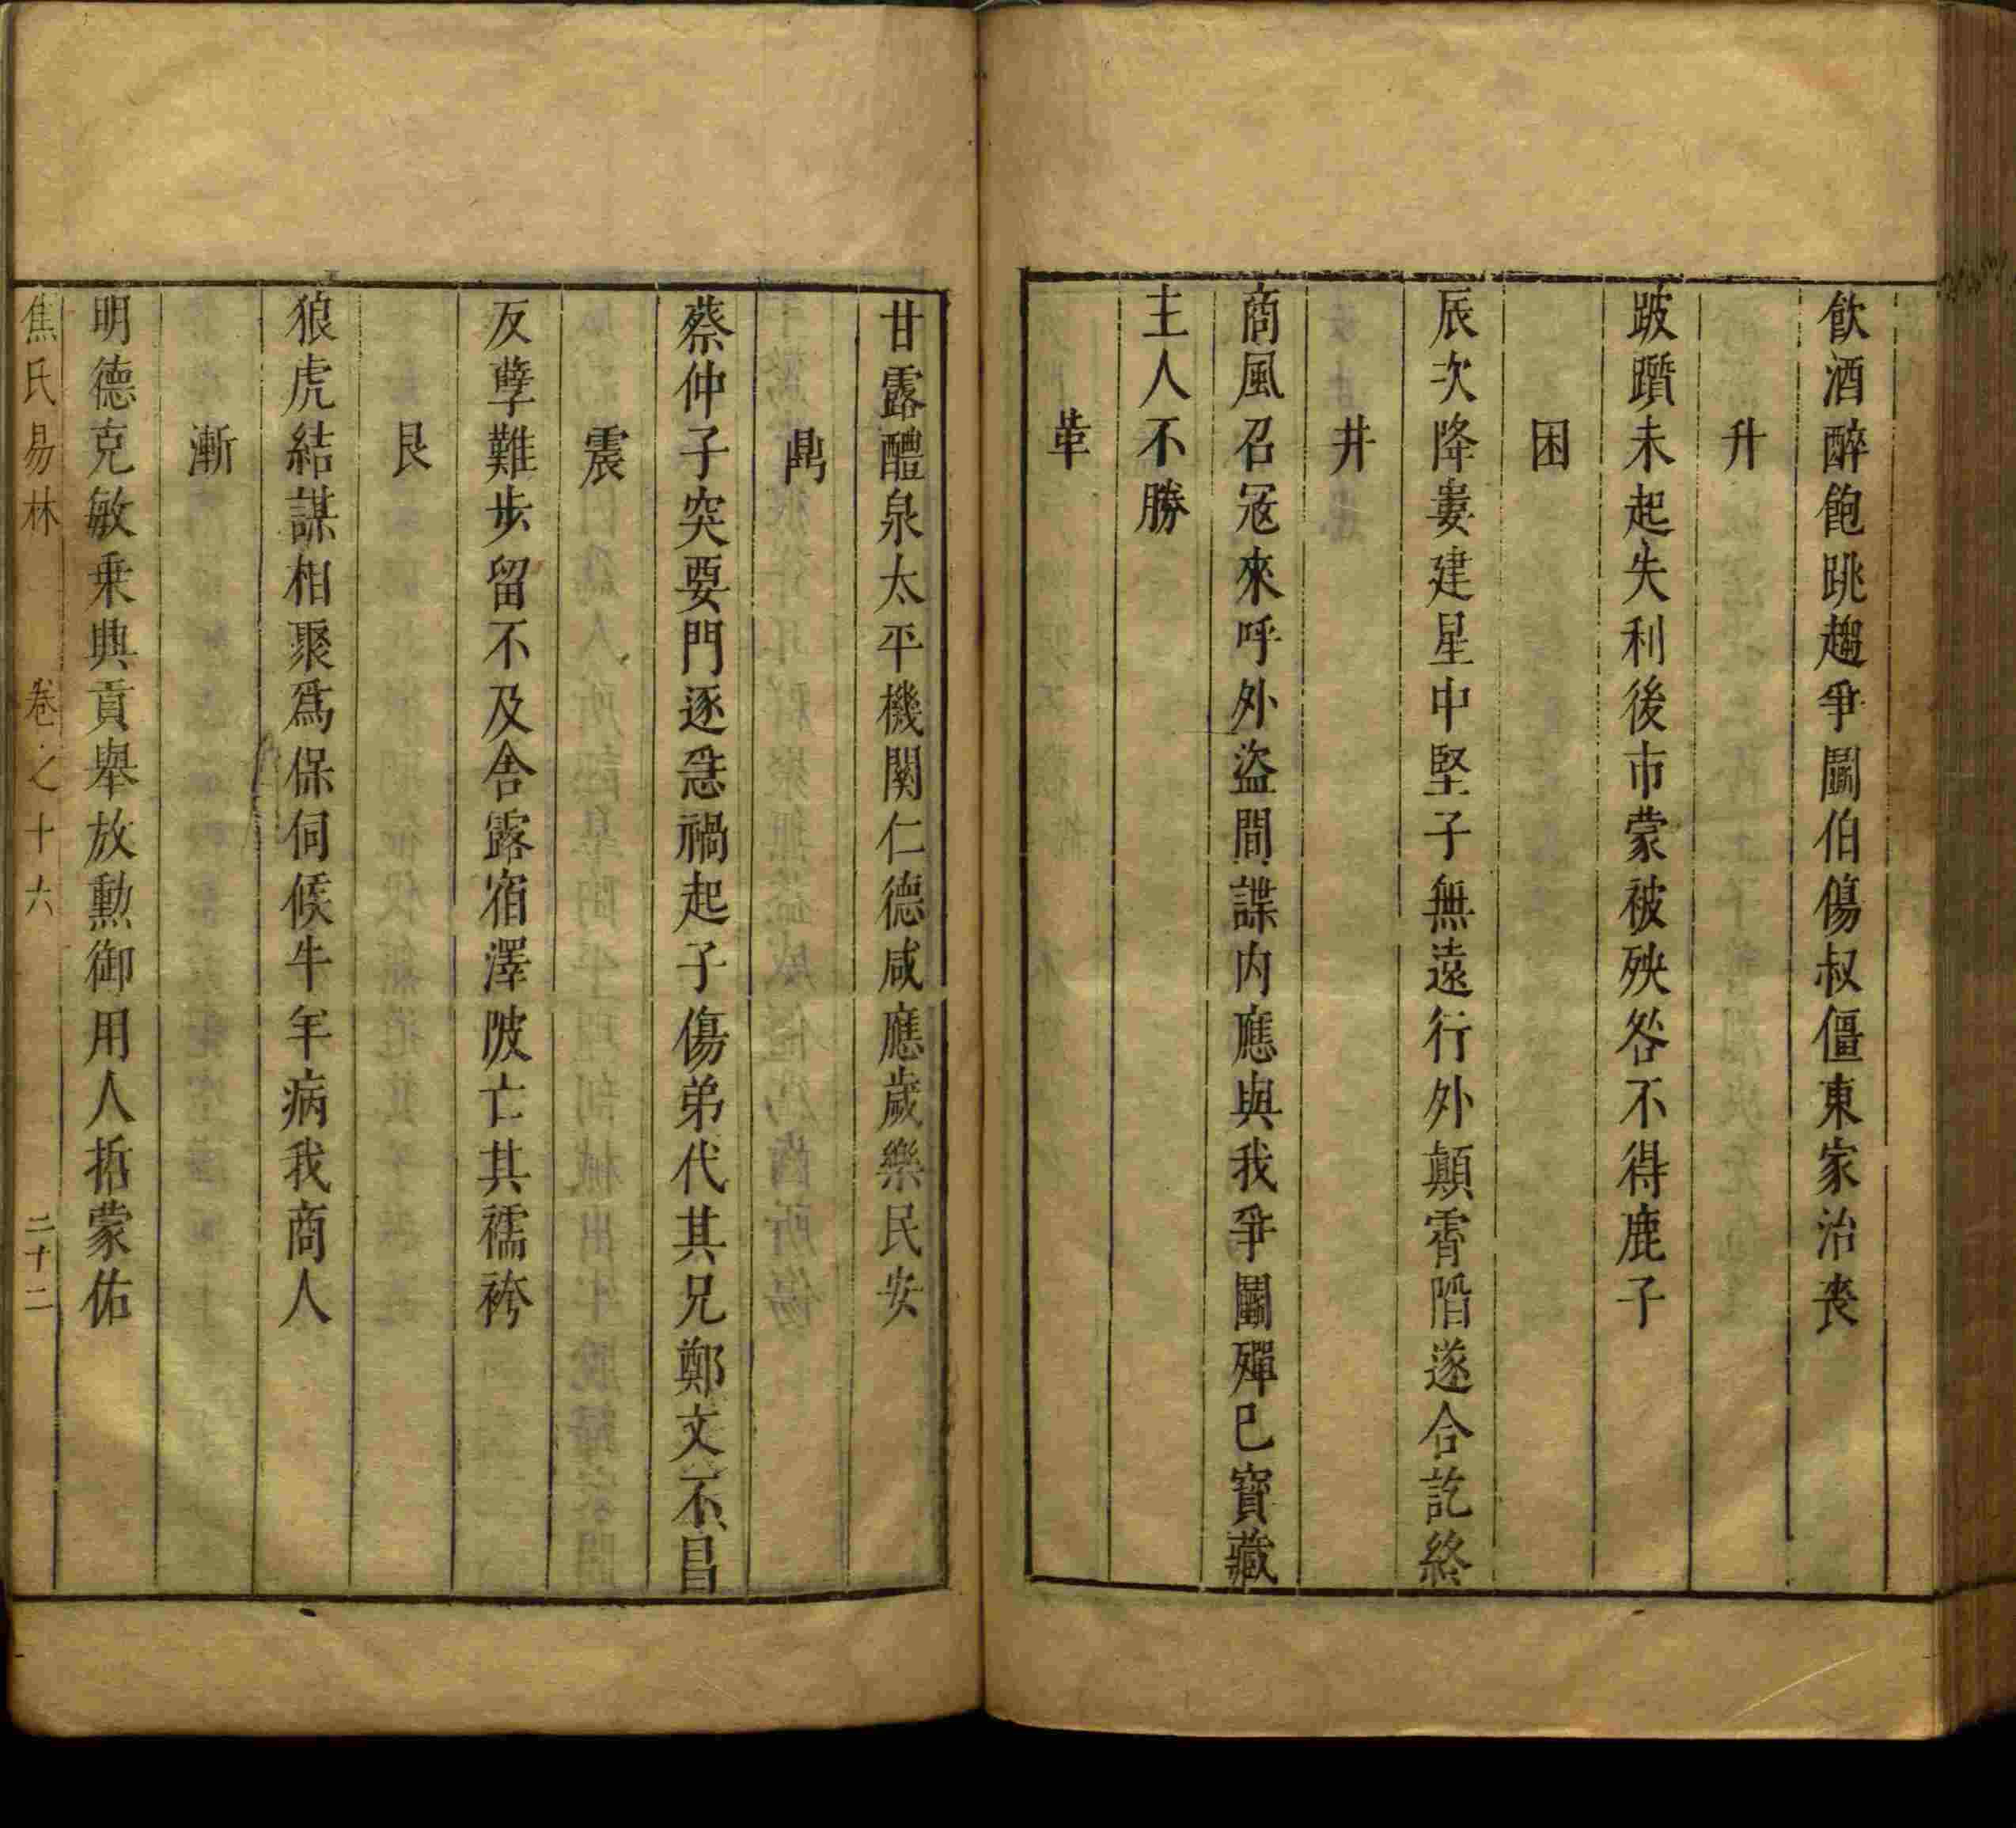 飲酒醉飽跳趨爭鬭伯傷叔僵東家治喪
升
跛躓未起失利後市蒙被殃咎不得鹿子
困
辰次降婁建星中堅子無遠行外顛霄陷遂合訖終
井
商風召冦來呼外盜間諜内應與我爭鬭殫已寳藏
主人不勝
革
甘露醴泉太平機關仁德咸應歲樂民安
鼎
蔡仲子突要門逐忽禍起子傷弟代其兄鄭文不昌
震
反孽難步留不及舍露宿澤陂亡其襦袴
艮
狼虎結謀相聚爲保伺候牛羊病我商人
漸
明德克敏乗典貢舉放勲御用人哲蒙佑
焦氏易林 卷之十六 二十二